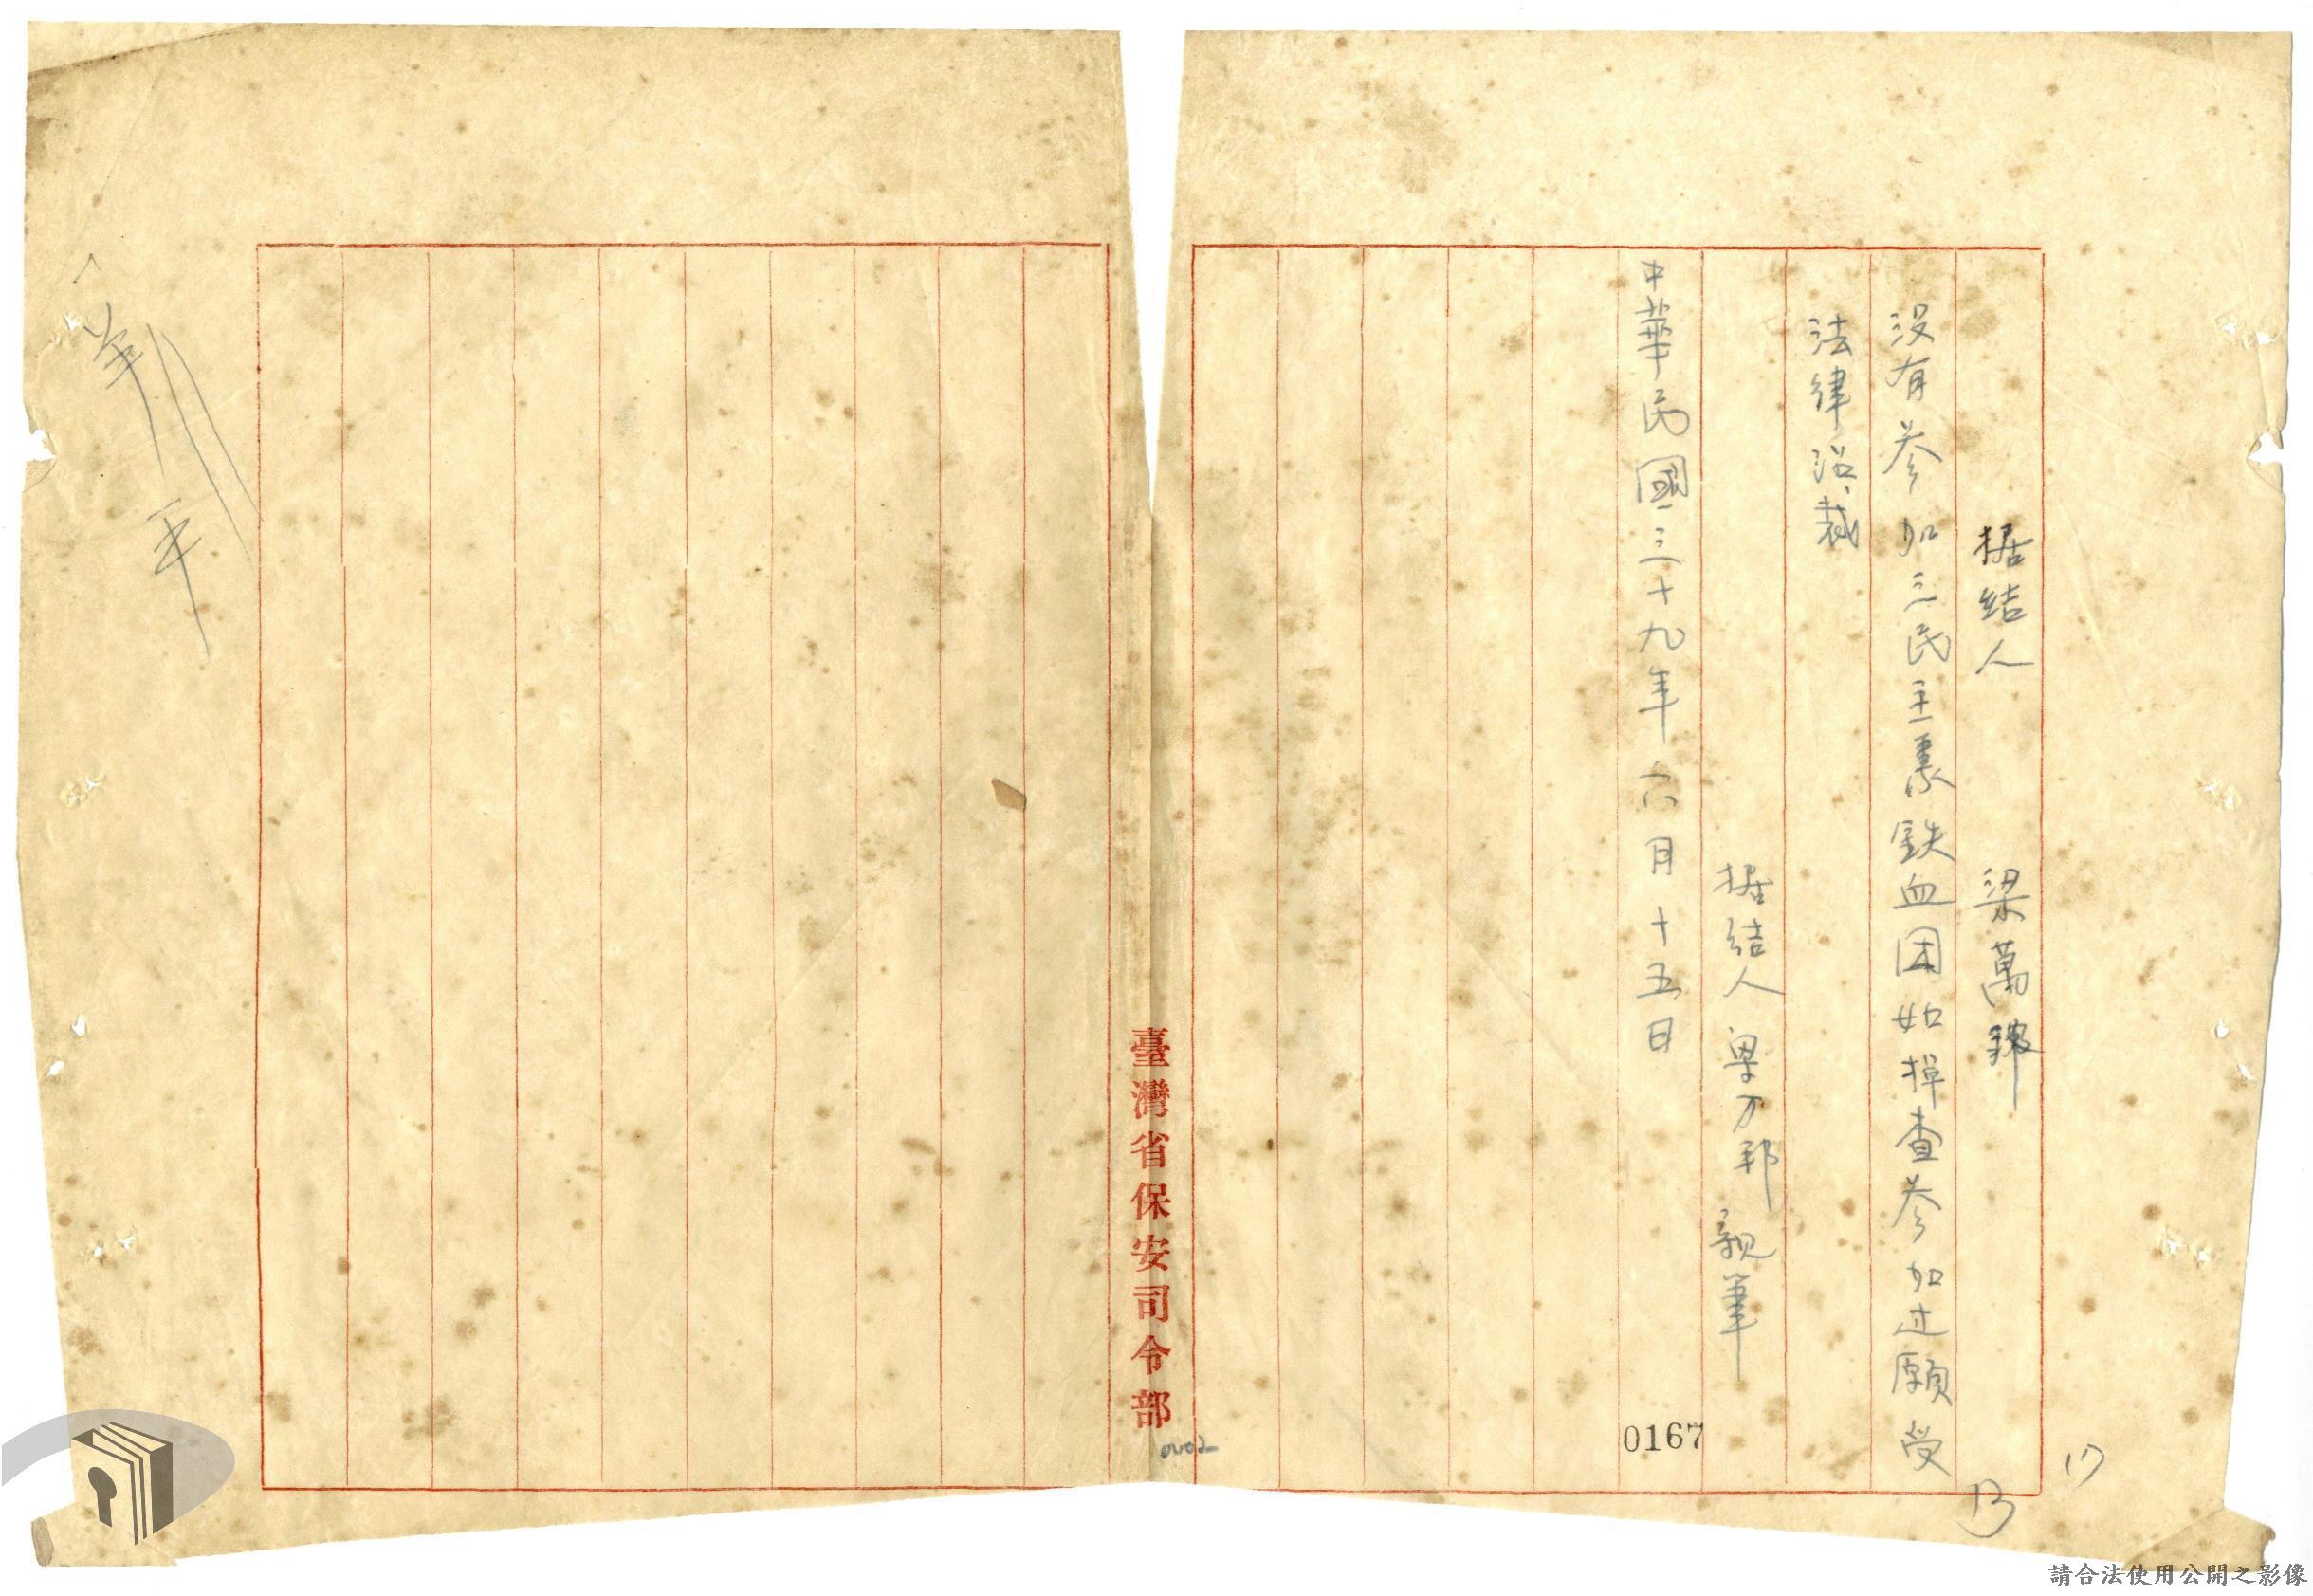 据结人 梁萬
没有参加三民主義鉄血团如掉查参加过願受
法律治裁
据结人 親筆
中華民國三十九年六月十五日
0167
17
13
臺灣省保安司令部
0002
請合法使用公開之影像